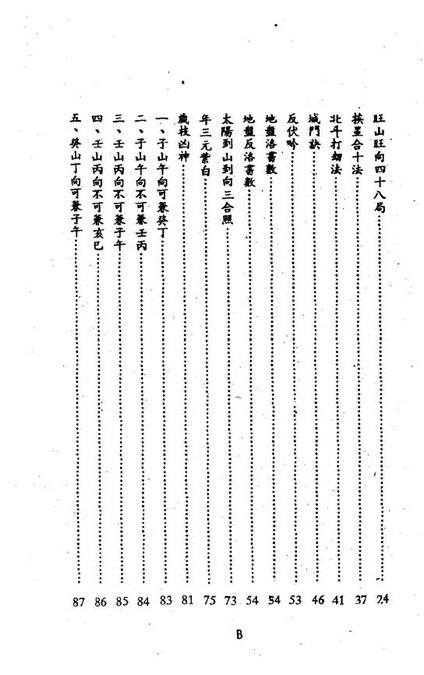 旺山旺向四十八局……24
挨星合十法……37
北斗打劫法……41
城門訣……46
反伏吟……53
地盤洛書數……54
地盤反洛書數……54
太陽到山到向三合照……73
年三元紫白……75
歲枝凶神……81
一、子山午向可兼癸丁……83
二、子山午向不可兼壬丙……84
三、壬山丙向不可兼子午……85
四、壬山丙向不可兼亥巳……86
五、癸山丁向可兼子午……87
B